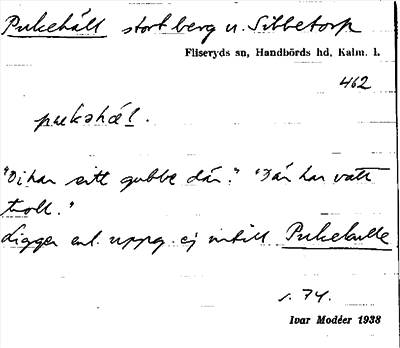 Pukehäll stort berg u. Sibbetorp
Fliseryds sn, Handbörds hd, Kalm. l.
462
pukəhäl.
"Di har sett gubbe där." "Där har vatt
troll."
Ligger enl. uppg. ej intill Pukekulle
s. 74.
Ivar Modéer 1938